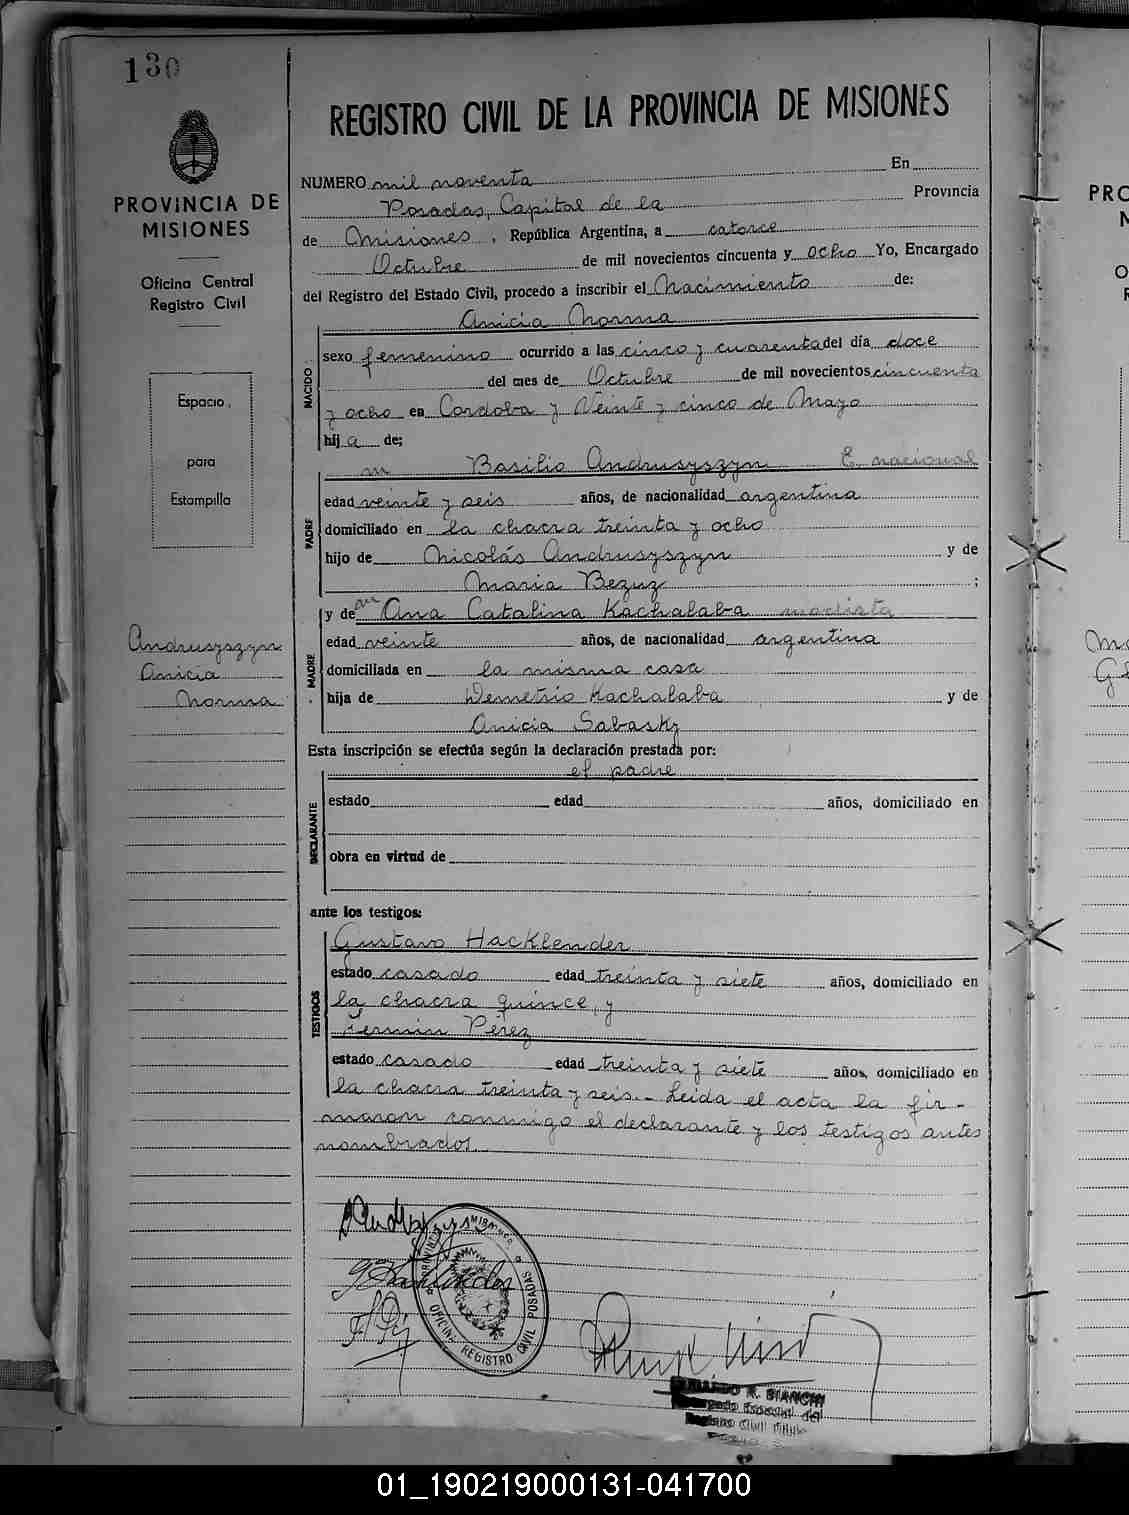 130
PROVINCIA DE
MISIONES
Oficina Central
Registro Civil
Espacio
para
Estampilla
Andrusyszyn
Anicia
Norma
REGISTRO CIVIL DE LA PROVINCIA DE MISIONES
NUMERO mil noventa En
Posadas, Capital de la Provincia
de Misiones, República Argentina, a catorce
Octubre de mil novecientos cincuenta y ocho Yo, Encargado
del Registro del Estado Civil, procedo a inscribir el Nacimiento de:
Anicia Norma
NACIDO
sexo femenino ocurrido a las cinco y cuarenta del día doce
del mes de Octubre de mil novecientos cincuenta
y ocho en Cordoba y Veinte y cinco de Mayo
hija de:
m Basilio Andrusyszyn E. nacional
PADRE
edad veinte y seis años, de nacionalidad argentina
domiciliado en la chacra treinta y ocho
hijo de Nicolás Andrusyszyn y de
Maria Bezuz ;
MADRE
y de Ana Catalina Kachalaba modista
edad veinte años, de nacionalidad argentina
domiciliada en la misma casa
hija de Demetrio Kachalaba y de
Anicia Sabasky
Esta inscripción se efectúa según la declaración prestada por:
el padre
DECLARANTE
estado edad años, domiciliado en
obra en virtud de
ante los testigos:
TESTIGOS
Gustavo Hacklender
estado casado edad treinta y siete años, domiciliado en
la chacra quince, y
Fermin Pérez
estado casado edad treinta y siete años, domiciliado en
la chacra treinta y seis.- Leida el acta la fir-
maron conmigo el declarante y los testigos antes
nombrados.
PROVINCIA MISIONES
OFICINA REGISTRO CIVIL POSADAS
R. BIANCHI
Encargado Especial del
Registro Civil
01_190219000131-041700